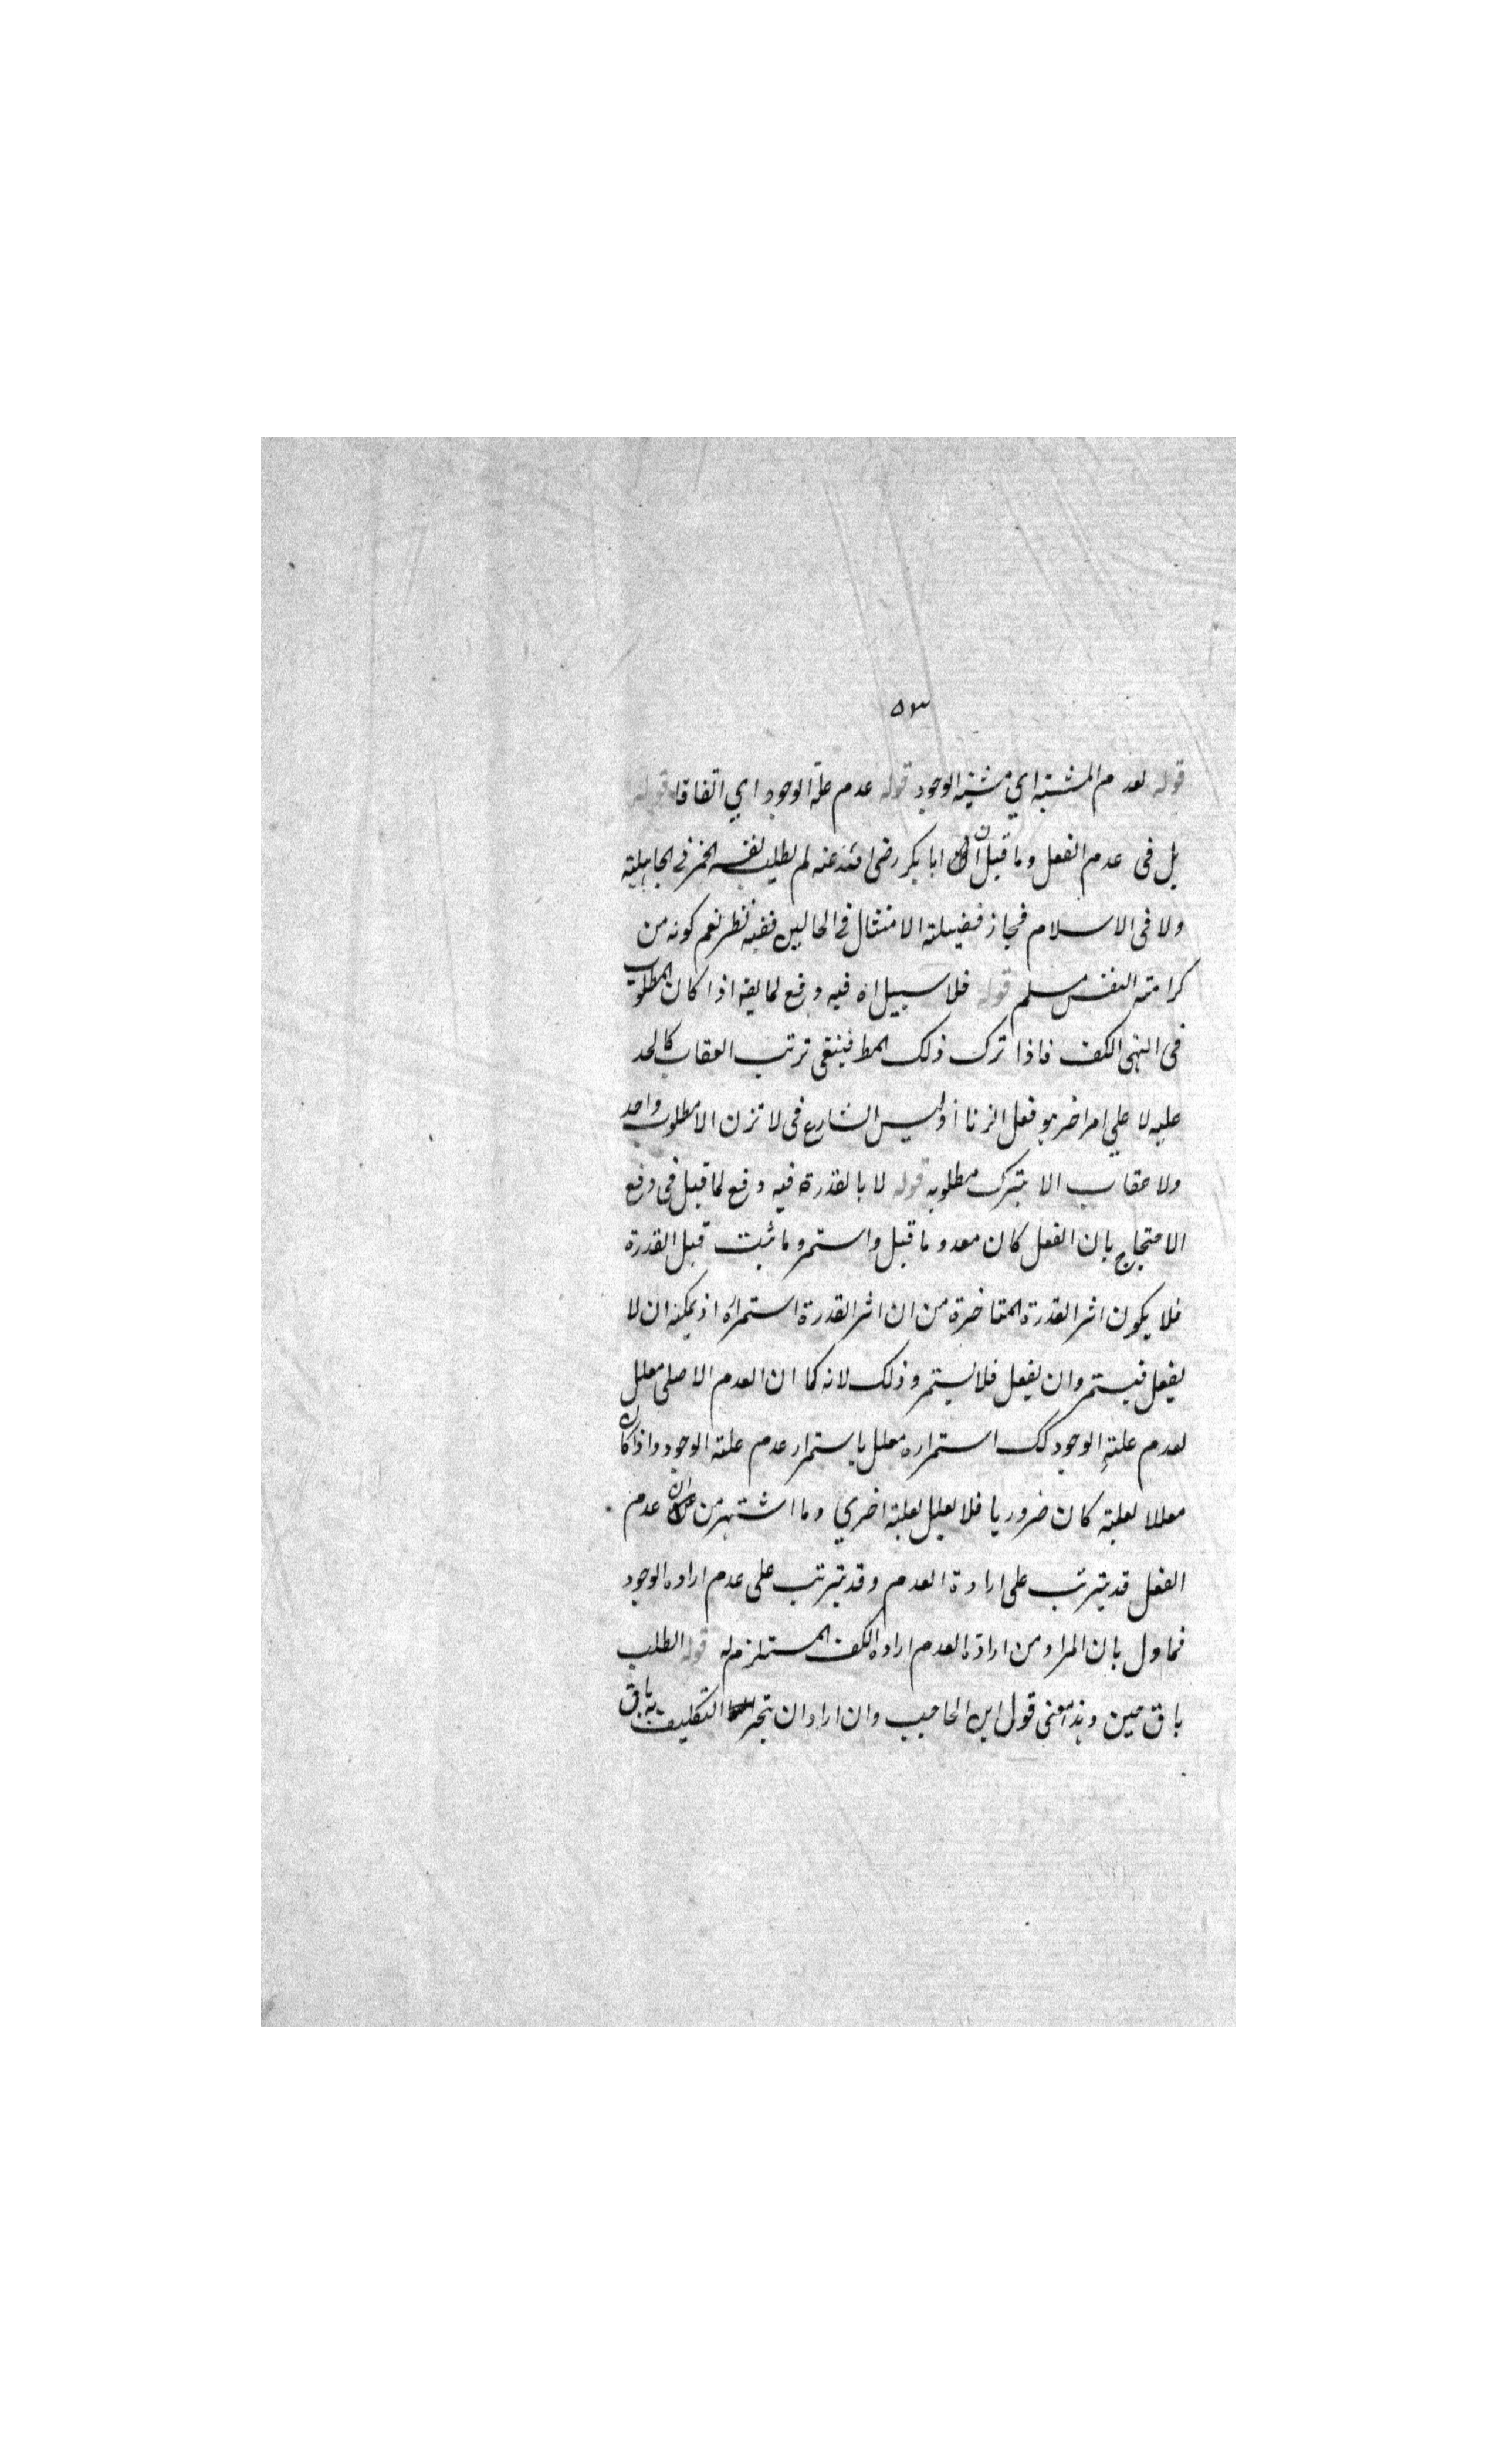 ٥٣
قوله لعدم المشية اي مشية الوجود قوله عدم علة الوجود اي اتفاقا قوله
بل فى عدم الفعل وما قيل ان ابا بكر رضى الله عنه لم يطلب نفسه الخمر فى الجاهلية
ولا فى الاسلام فحاز فضيلة الامتثال فى الحالين ففيه نظر نعم كونه من
كرامة النفس مسلم قوله فلا سبيل اه فيه دفع لما يقه اذا كان المطلوب
فى النهى الكف فاذا ترك ذلك المط فينبغى ترتب العقاب كالحد
عليه لا علي امر اخر هو فعل الزنا اذ ليس للشارع فى لا تزن الا مطلوب واحد
ولا عقاب الا بترك مطلوبه قوله لا بالقدرة فيه دفع لما قيل فى دفع
الاحتجاج بان الفعل كان معدوما قبل واستمر وما ثبت قبل القدرة
فلا يكون اثر القدرة المتاخرة من ان اثر القدرة استمراره اذ يمكنه ان لا
يفعل فيستمر وان يفعل فلا يستمر وذلك لانه كما ان العدم الاصلى معلل
لعدم علة الوجود كك استمراره معلل باستمرار عدم علة الوجود واذا كان
معللا لعلية كان ضروريا فلا يعلل لعلة اخري وما اشتهر من ان عدم
الفعل قد يترتب على ارادة العدم وقد يترتب على عدم اراده الوجود
فماول بان المراد من ارادة العدم اراده الكف المستلزم له قوله الطلب
باق حين وهذا معنى قول ابن الحاجب وان اراد ان تنجيز التكليف به باق